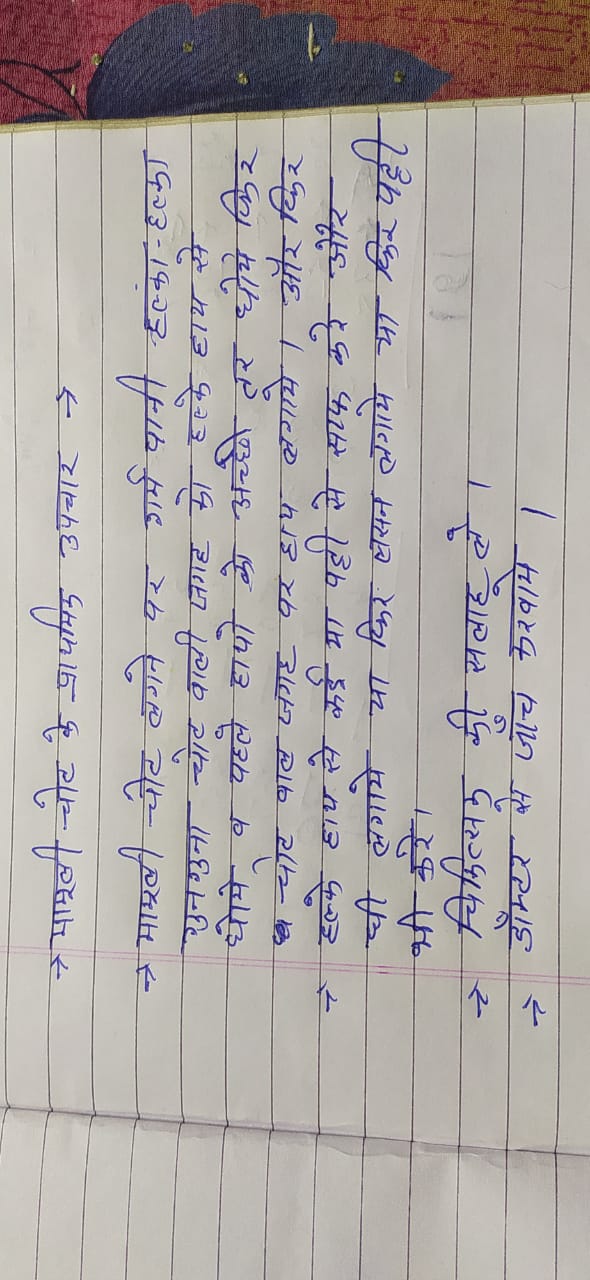 → मामूली चोट के प्राथमिक उपचार →
→ मामूली चोट लगने पर गर्म पानी हल्का-हल्का
गुनगुना चोट वाली जगह को हल्के हाथ से
धोये व पहले हाथो को अच्छी तर धोये फिर
चोट वाल जगह पर हाथ लगाये। और फिर
→ हल्के हाथ से रूई या पट्टी से साफ करे और
घी लगाये या फिर लसन लगाये या फिर पट्टी
भी करे।
→ चिकित्सक की सलाह ले।
→ डॉक्टर से जाँच करवाये।